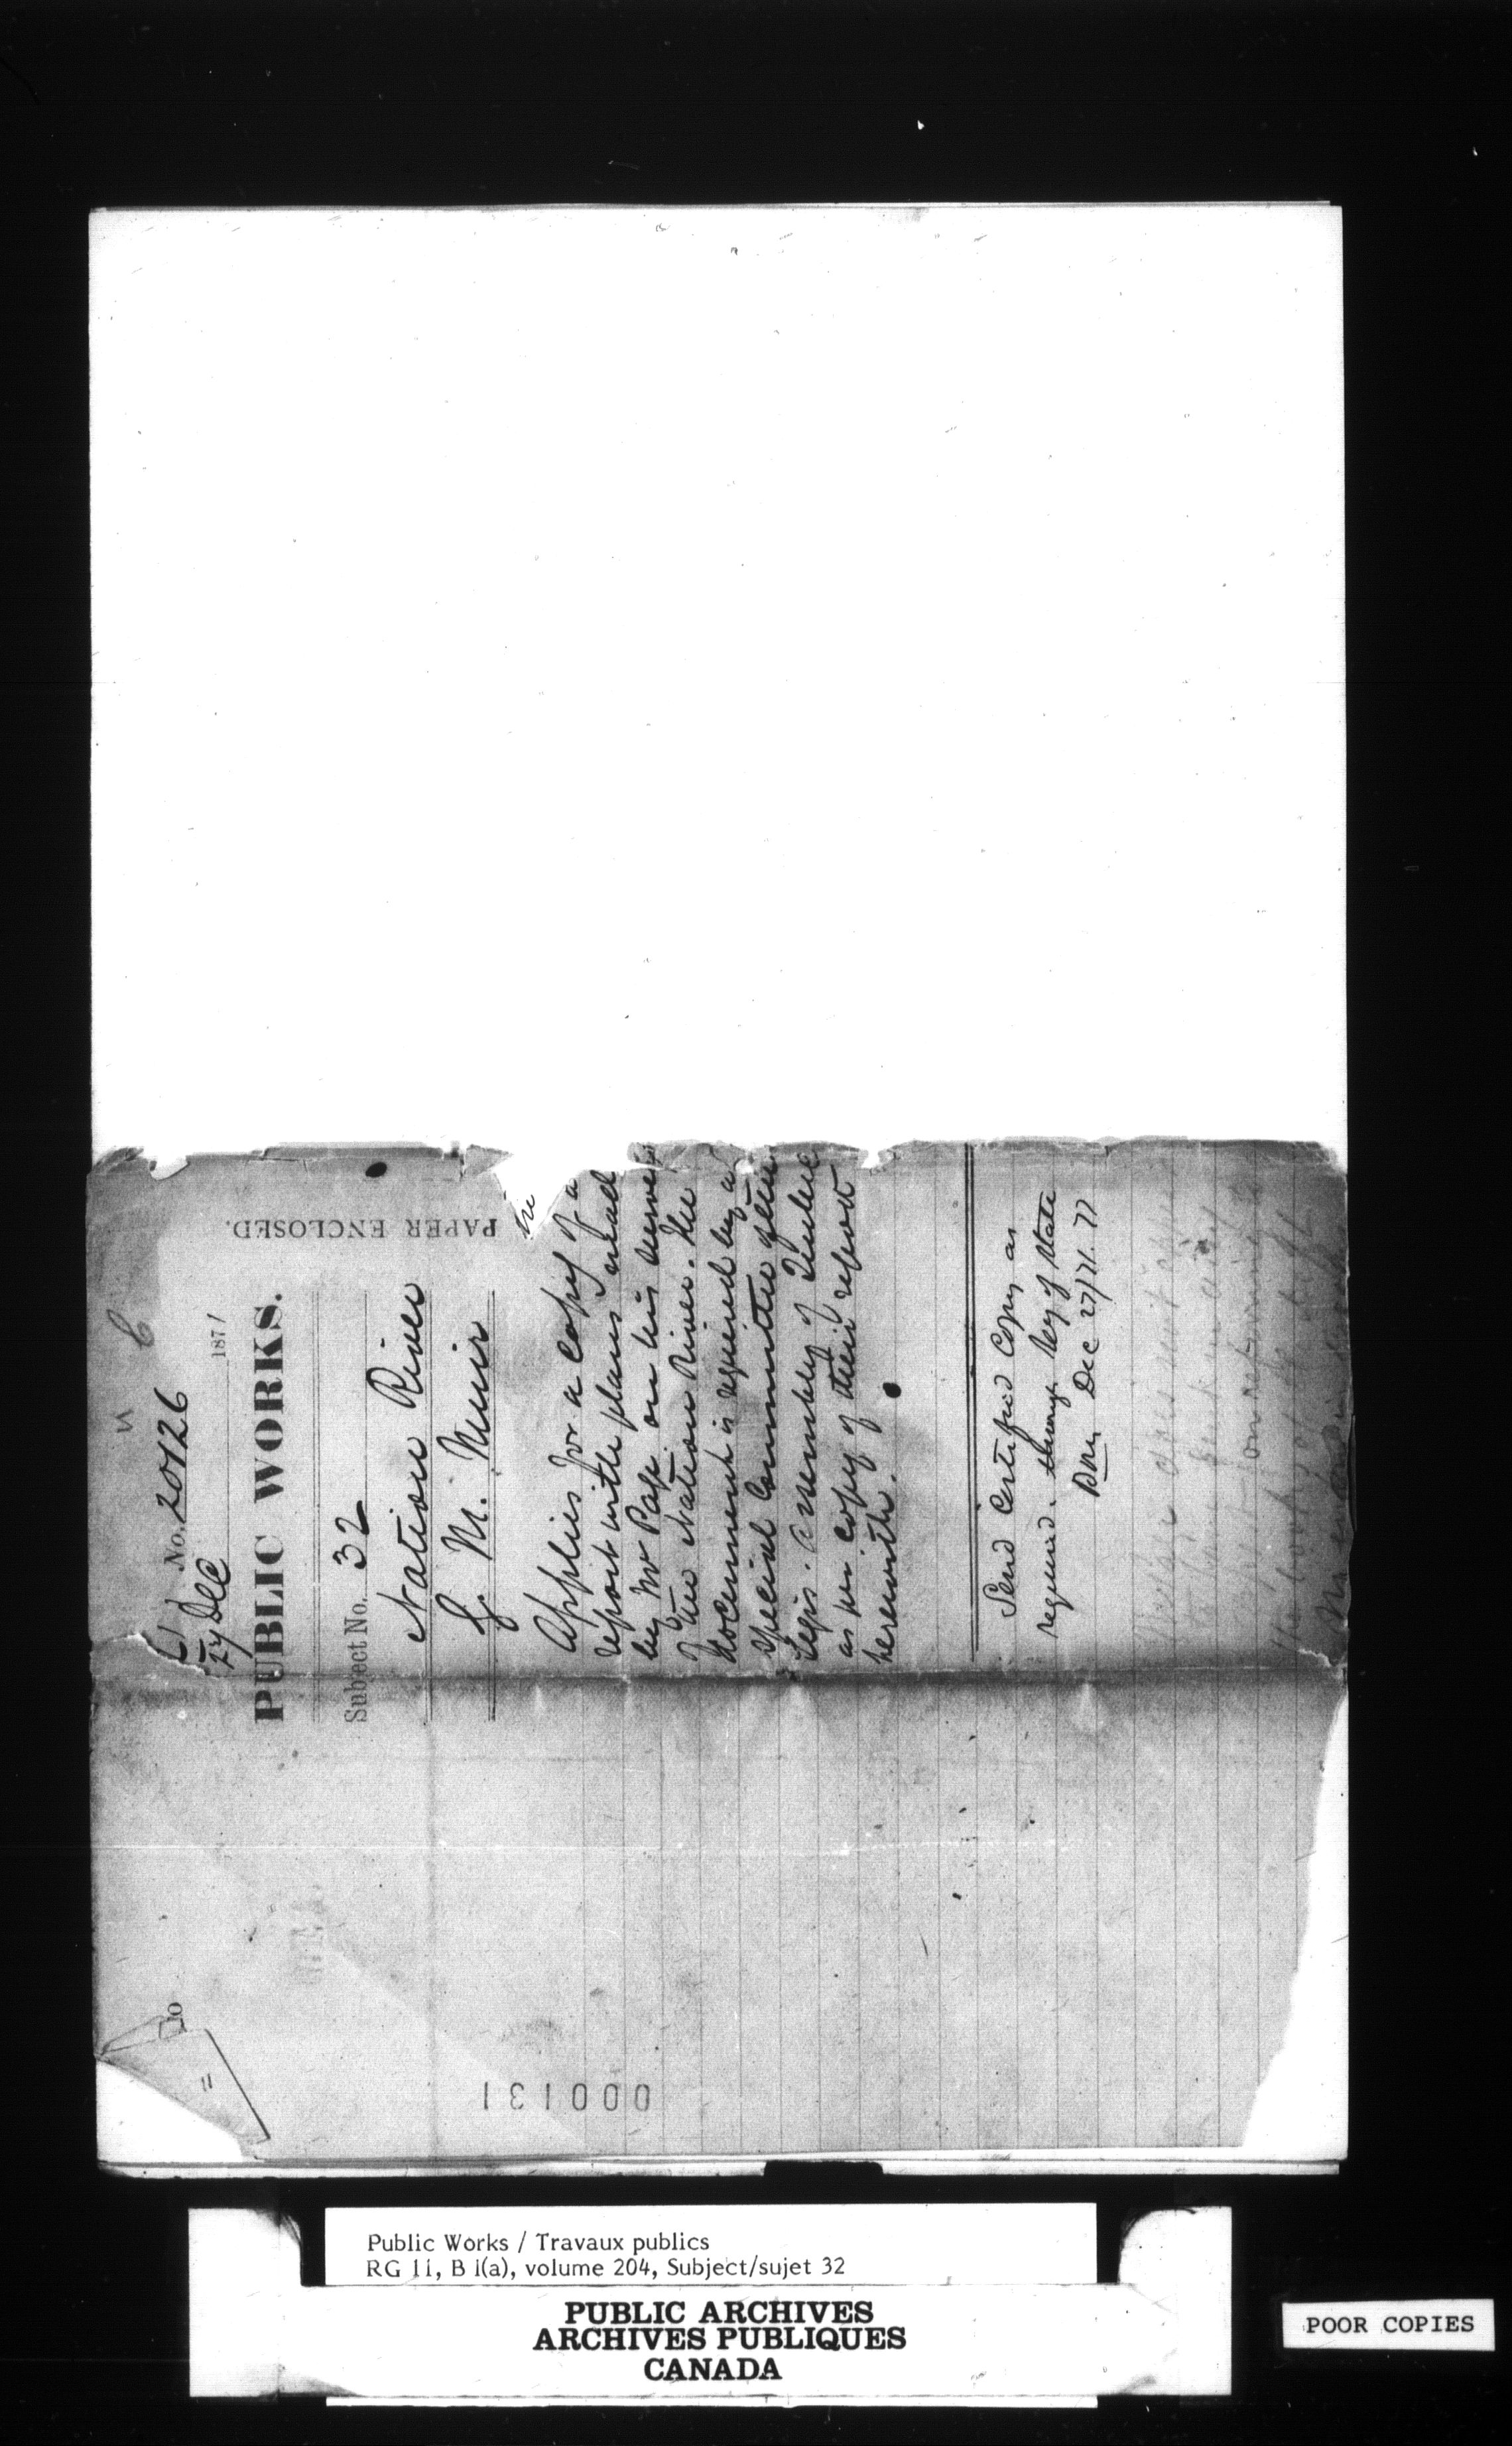 No. 20126
27 Dec 1871
PUBLIC WORKS.
Subject No. 32
Nation River
J. M. Muir
PAPER ENCLOSED.
the
Applies for a copy of a
report with plans made
by Mr Page on his survey
of the Nation River. The
document is required by a
Special Committee of the
Legis. Assembly of Quebec
as per copy of their report
herewith.
Send Certified Copy as
required. through Secy of State
Dec 27/71.
000131
Public Works / Travaux publics
RG 11, B 1(a), volume 204, Subject/sujet 32
PUBLIC ARCHIVES
ARCHIVES PUBLIQUES
CANADA
POOR COPIES